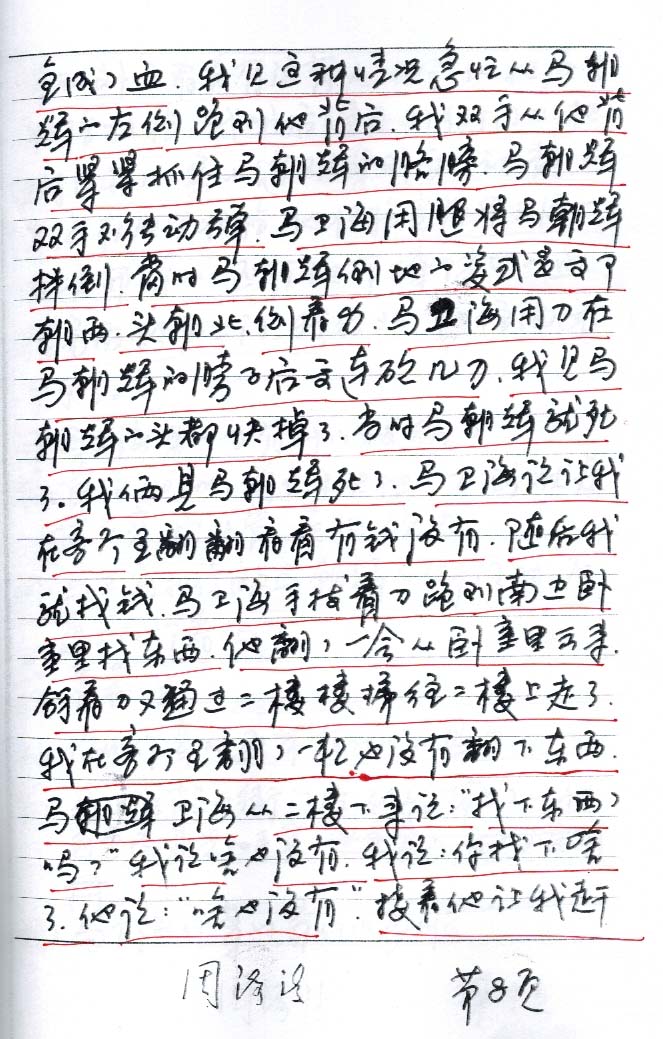 全成了血。我见这种情况急忙从马朝
辉的左侧跑到他背后，我双手从他背
后紧紧抓住马朝辉的胳膊，马朝辉
双手不能动弹。马卫海用腿将马朝辉
拌倒，当时马朝辉倒地的姿式是面
朝西，头朝北，侧着身，马卫海用刀在
马朝辉的脖子后面连砍几刀，我见马
朝辉的头都快掉了，当时马朝辉就死
了。我俩见马朝辉死了，马卫海说让我
在客厅里翻翻看看有钱没有，随后我
就找钱，马卫海手拔着刀跑到南边卧
室里找东西，他翻了一会从卧室里出来，
领着刀又通过二楼楼梯往二楼上走了。
我在客厅里翻了一轮也没有翻下东西，
马卫海从二楼下来说：“找下东西了
吗？”我说啥也没有，我说：你找下啥
了，他说：“啥也没有”。接着他让我赶
第8页